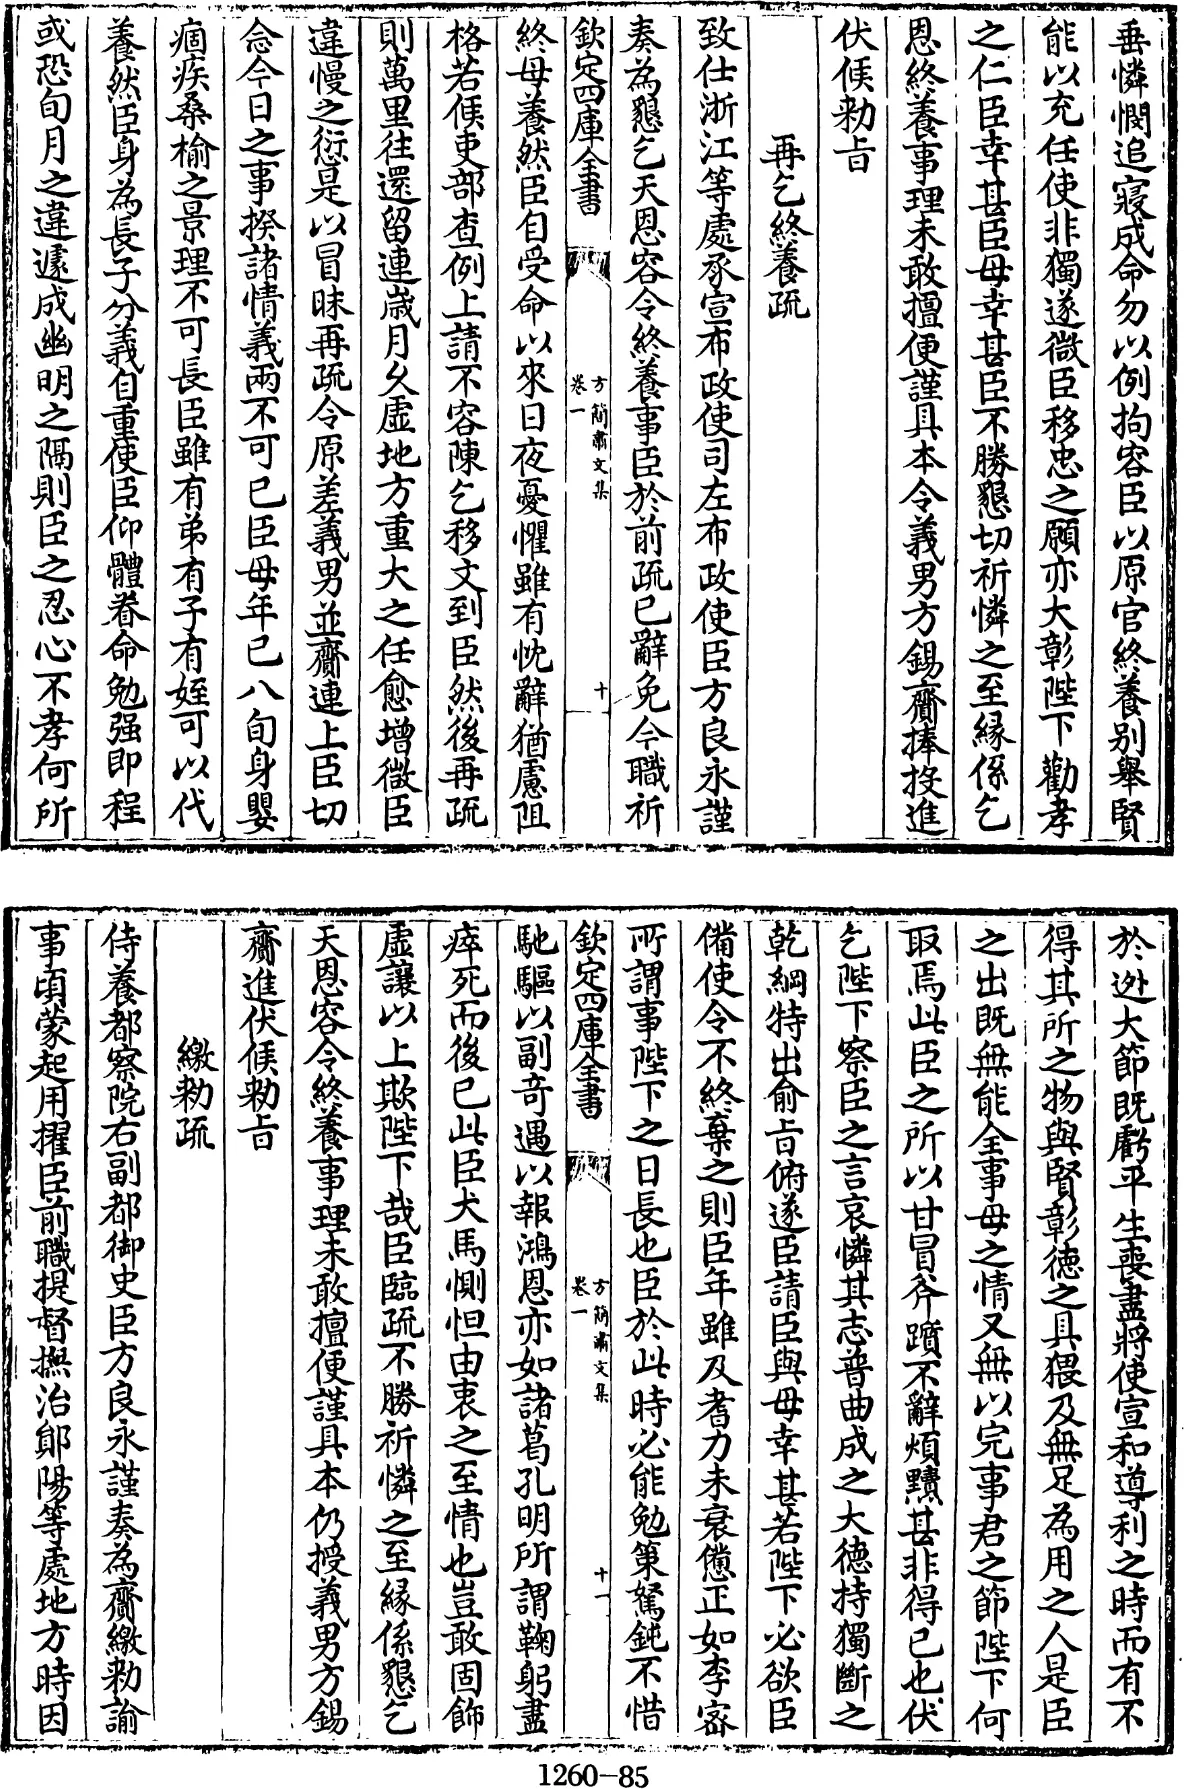 垂憐憫追寢成命勿以例拘容臣以原官終養别舉賢
能以充任使非獨遂微臣移忠之願亦大彰陛下勸孝
之仁臣幸甚臣母幸甚臣不勝懇切祈憐之至縁係乞
恩終養事理未敢擅便謹具本令義男方錫齎捧投進
伏候勅㫖
再乞終養疏
致仕浙江等處承宣布政使司左布政使臣方良永謹
奏為懇乞天恩容令終養事臣於前疏已辭免今職祈
欽定四庫全書
方簡肅文集
卷一
十
終母養然臣自受命以來日夜憂懼雖有忱辭猶慮阻
格若候吏部查例上請不容陳乞移文到臣然後再疏
則萬里往還留連嵗月久虛地方重大之任愈增微臣
違慢之愆是以冒昧再疏令原差義男並齎連上臣切
念今日之事揆諸情義兩不可已臣母年已八旬身嬰
痼疾桑榆之景理不可長臣雖有弟有子有姪可以代
養然臣身為長子分義自重使臣仰體眷命勉强即程
或恐旬月之違遽成幽明之隔則臣之忍心不孝何所
於逃大節既虧平生喪盡將使宣和導利之時而有不
得其所之物與賢彰德之具猥及無足為用之人是臣
之出既無能全事母之情又無以完事君之節陛下何
取焉此臣之所以甘冒斧躓不辭煩黷甚非得已也伏
乞陛下察臣之言哀憐其志普曲成之大德持獨斷之
乾綱特出俞㫖俯遂臣請臣與母幸甚若陛下必欲臣
備使令不終棄之則臣年雖及耆力未衰憊正如李宻
所謂事陛下之日長也臣於此時必能勉策駑鈍不惜
欽定四庫全書
方簡肅文集
卷一
十一
馳驅以副奇遇以報鴻恩亦如諸葛孔明所謂鞠躬盡
瘁死而後已此臣犬馬惻怛由衷之至情也豈敢固飾
虛讓以上欺陛下哉臣臨疏不勝祈憐之至縁係懇乞
天恩容令終養事理未敢擅便謹具本仍授義男方錫
齎進伏候勅㫖
繳勅疏
侍養都察院右副都御史臣方良永謹奏為齎繳勅諭
事頃蒙起用擢臣前職提督撫治鄖陽等處地方時因
1260-85